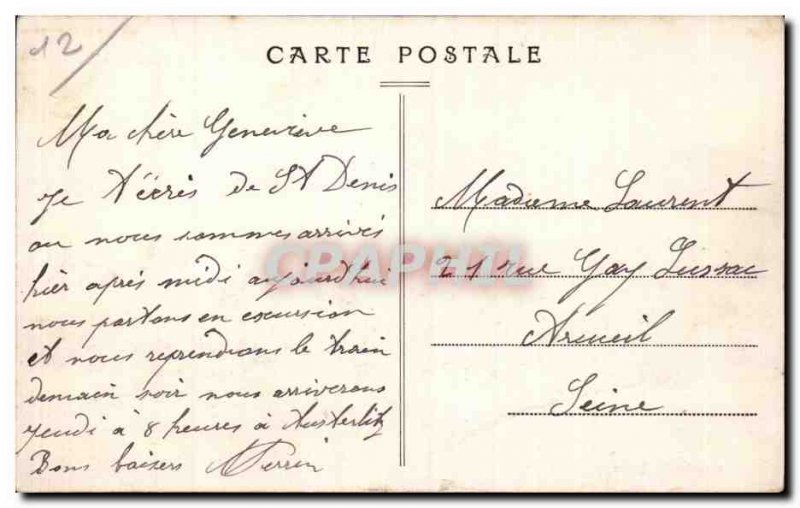 12/
CARTE POSTALE
Ma chère Geneviève
je t'écris de St Denis
ou nous sommes arrivés
hier après midi aujourdhui
nous partons en excursion
et nous reprendrons le train
demain soir nous arriverons
jeudi à 8 heures à Austerlitz
Bons baisers
Madame Laurent
21 rue Gay Lussac
Arcueil
Seine
CPAPHIL